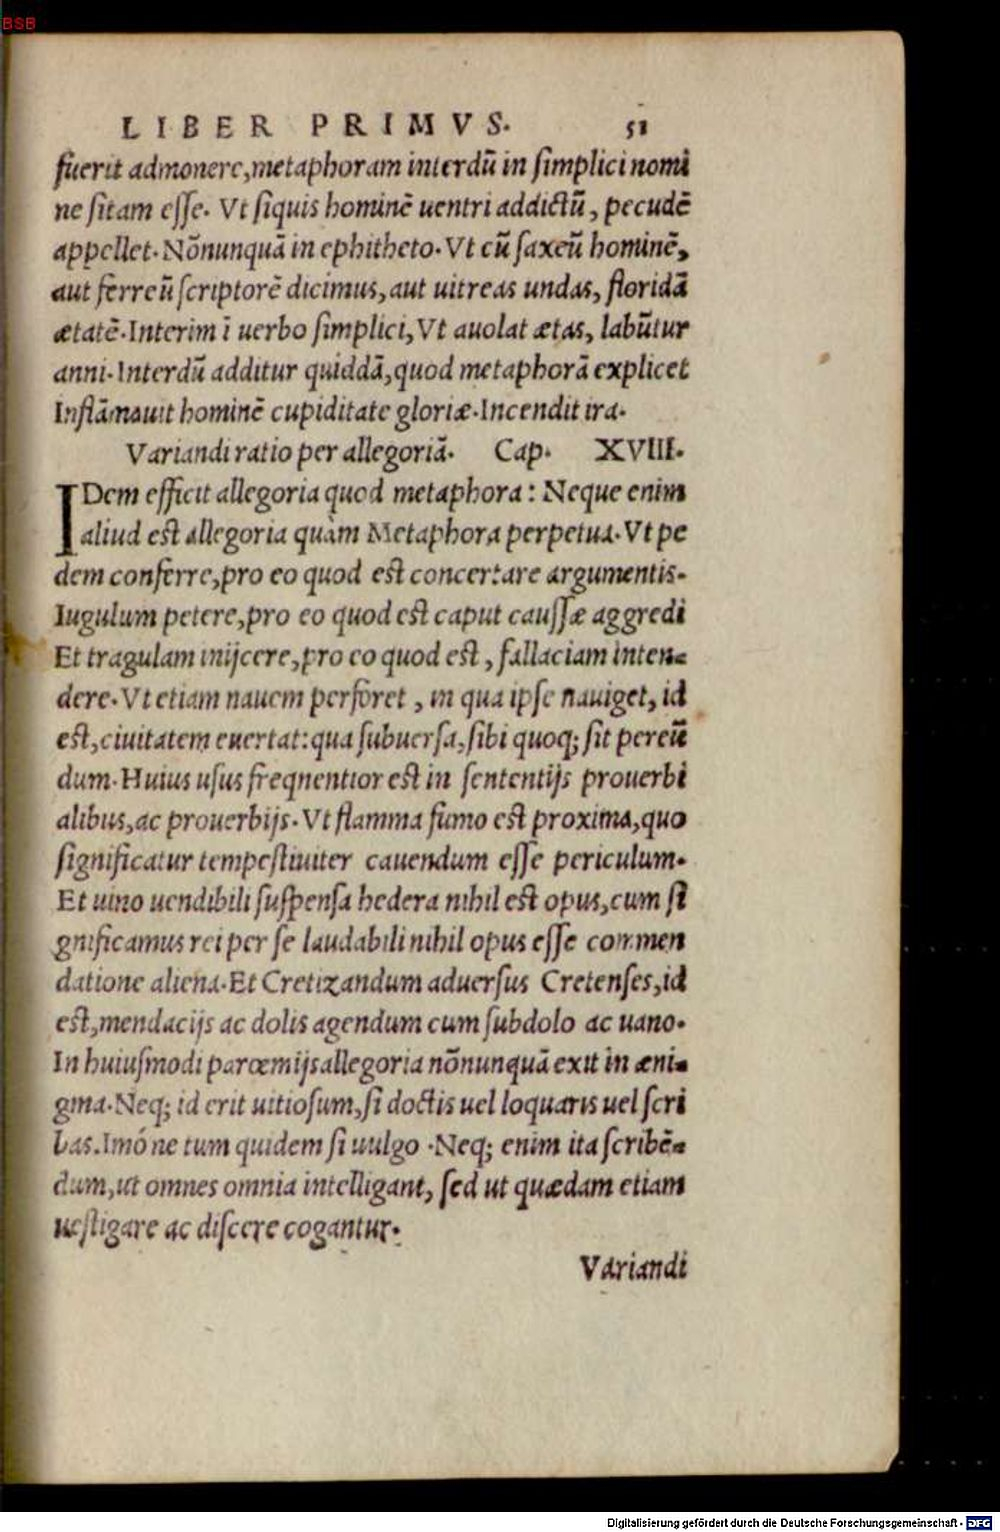 BSB
LIBER PRIMVS. 51
fuerit admonere, metaphoram interdũ in simplici nomi
ne sitam esse. Vt siquis hominẽ uentri addictũ, pecudẽ
appellet. Nõnunquã in ephitheto. Vt cũ saxeũ hominẽ,
aut ferreũ scriptorẽ dicimus, aut uitreas undas, floridã
ætatẽ. Interim ĩ uerbo simplici, Vt auolat ætas, labũtur
anni. Interdũ additur quiddã, quod metaphorã explicet
Inflãmauit hominẽ cupiditate gloriæ. Incendit ira.
Variandi ratio per allegoriã. Cap. XVIII.
IDem efficit allegoria quod metaphora: Neque enim
aliud est allegoria quàm Metaphora perpetua. Vt pe
dem conferre, pro eo quod est concertare argumentis.
Iugulum petere, pro eo quod est caput caussæ aggredi
Et tragulam inijcere, pro eo quod est, fallaciam inten-
dere. Vt etiam nauem perforet, in qua ipse nauiget, id
est, ciuitatem euertat: qua subuersa, sibi quoq; sit pereũ
dum. Huius usus freqnentior est in sententijs prouerbi
alibus, ac prouerbijs. Vt flamma fumo est proxima, quo
significatur tempestiuiter cauendum esse periculum.
Et uino uendibili suspensa hedera nihil est opus, cum si
gnificamus rei per se laudabili nihil opus esse commen
datione aliena. Et Cretizandum aduersus Cretenses, id
est, mendacijs ac dolis agendum cum subdolo ac uano.
In huiusmodi parœmijs allegoria nõnunquã exit in æni-
gma. Neq; id erit uitiosum, si doctis uel loquaris uel scri
bas. Imó ne tum quidem si uulgo. Neq; enim ita scribẽ-
dum, ut omnes omnia intelligant, sed ut quædam etiam
uestigare ac discere cogantur.
Variandi
Digitalisierung gefördert durch die Deutsche Forschungsgemeinschaft - DFG